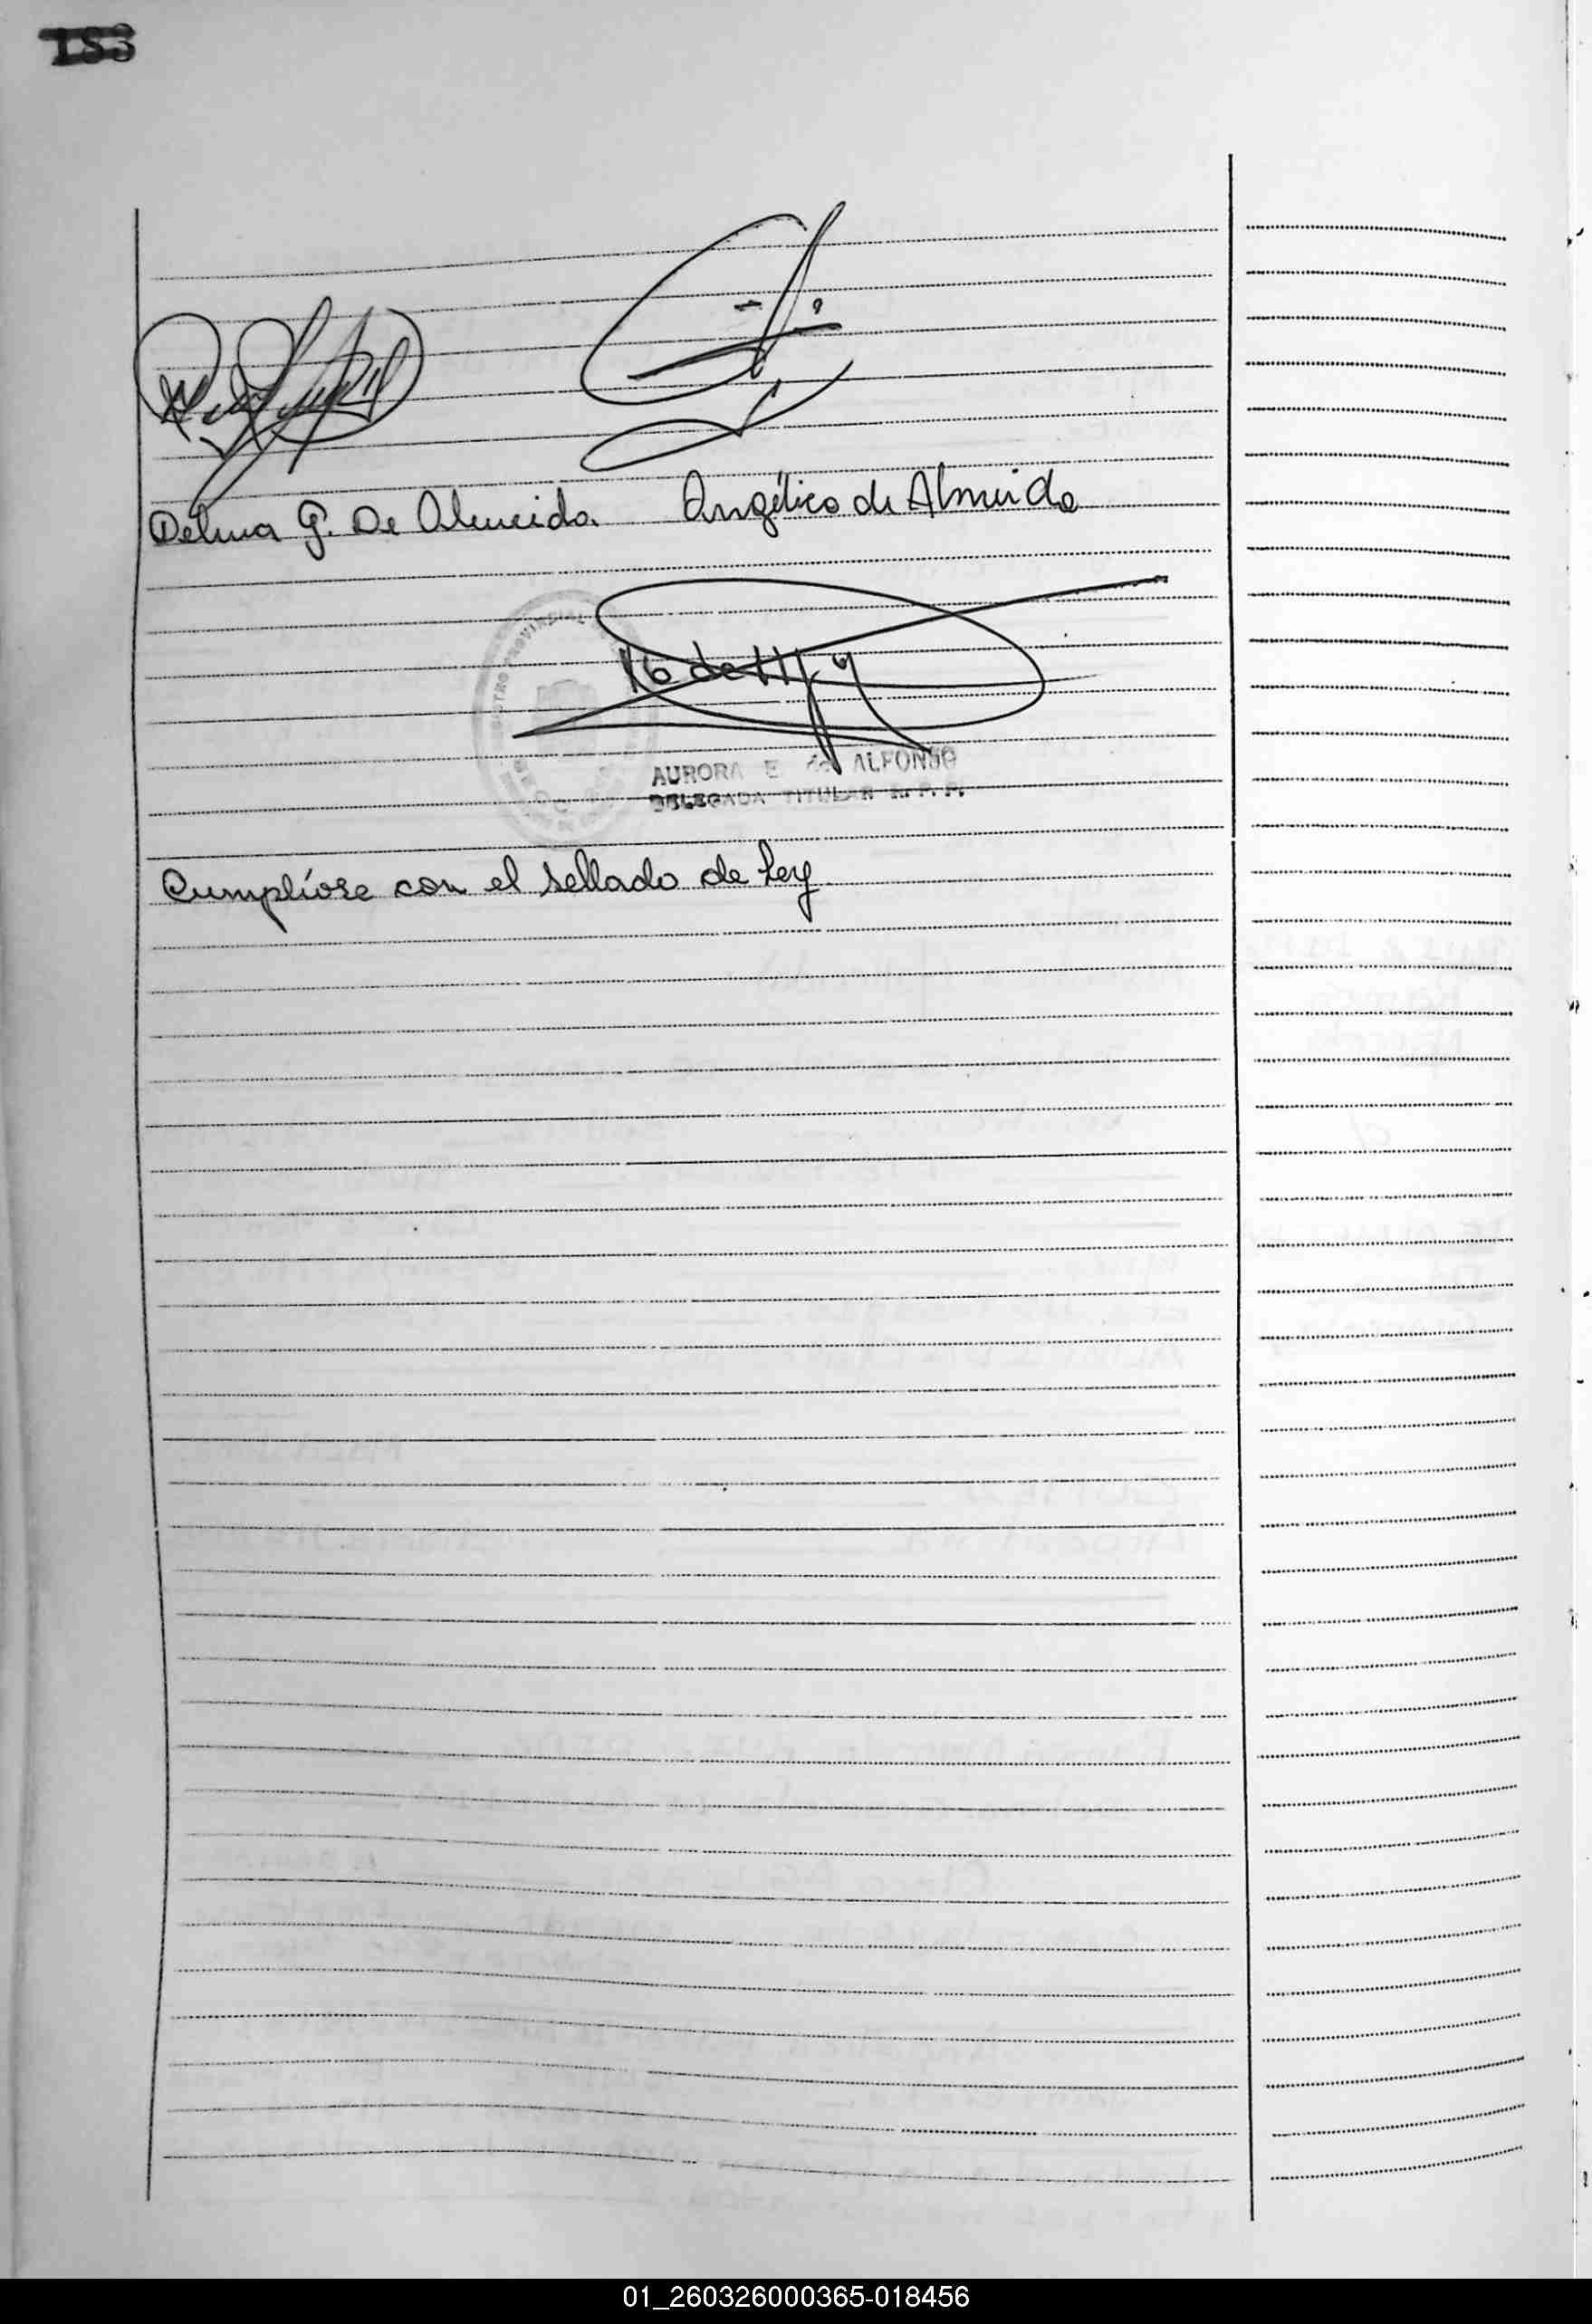 183
Delma G. De Almeida Angélica de Almeida
REGISTRO PROVINCIAL
AURORA E de ALFONSO
DELEGADA TITULAR R. P. P.
Cumplíose con el sellado de ley
01_260326000365-018456